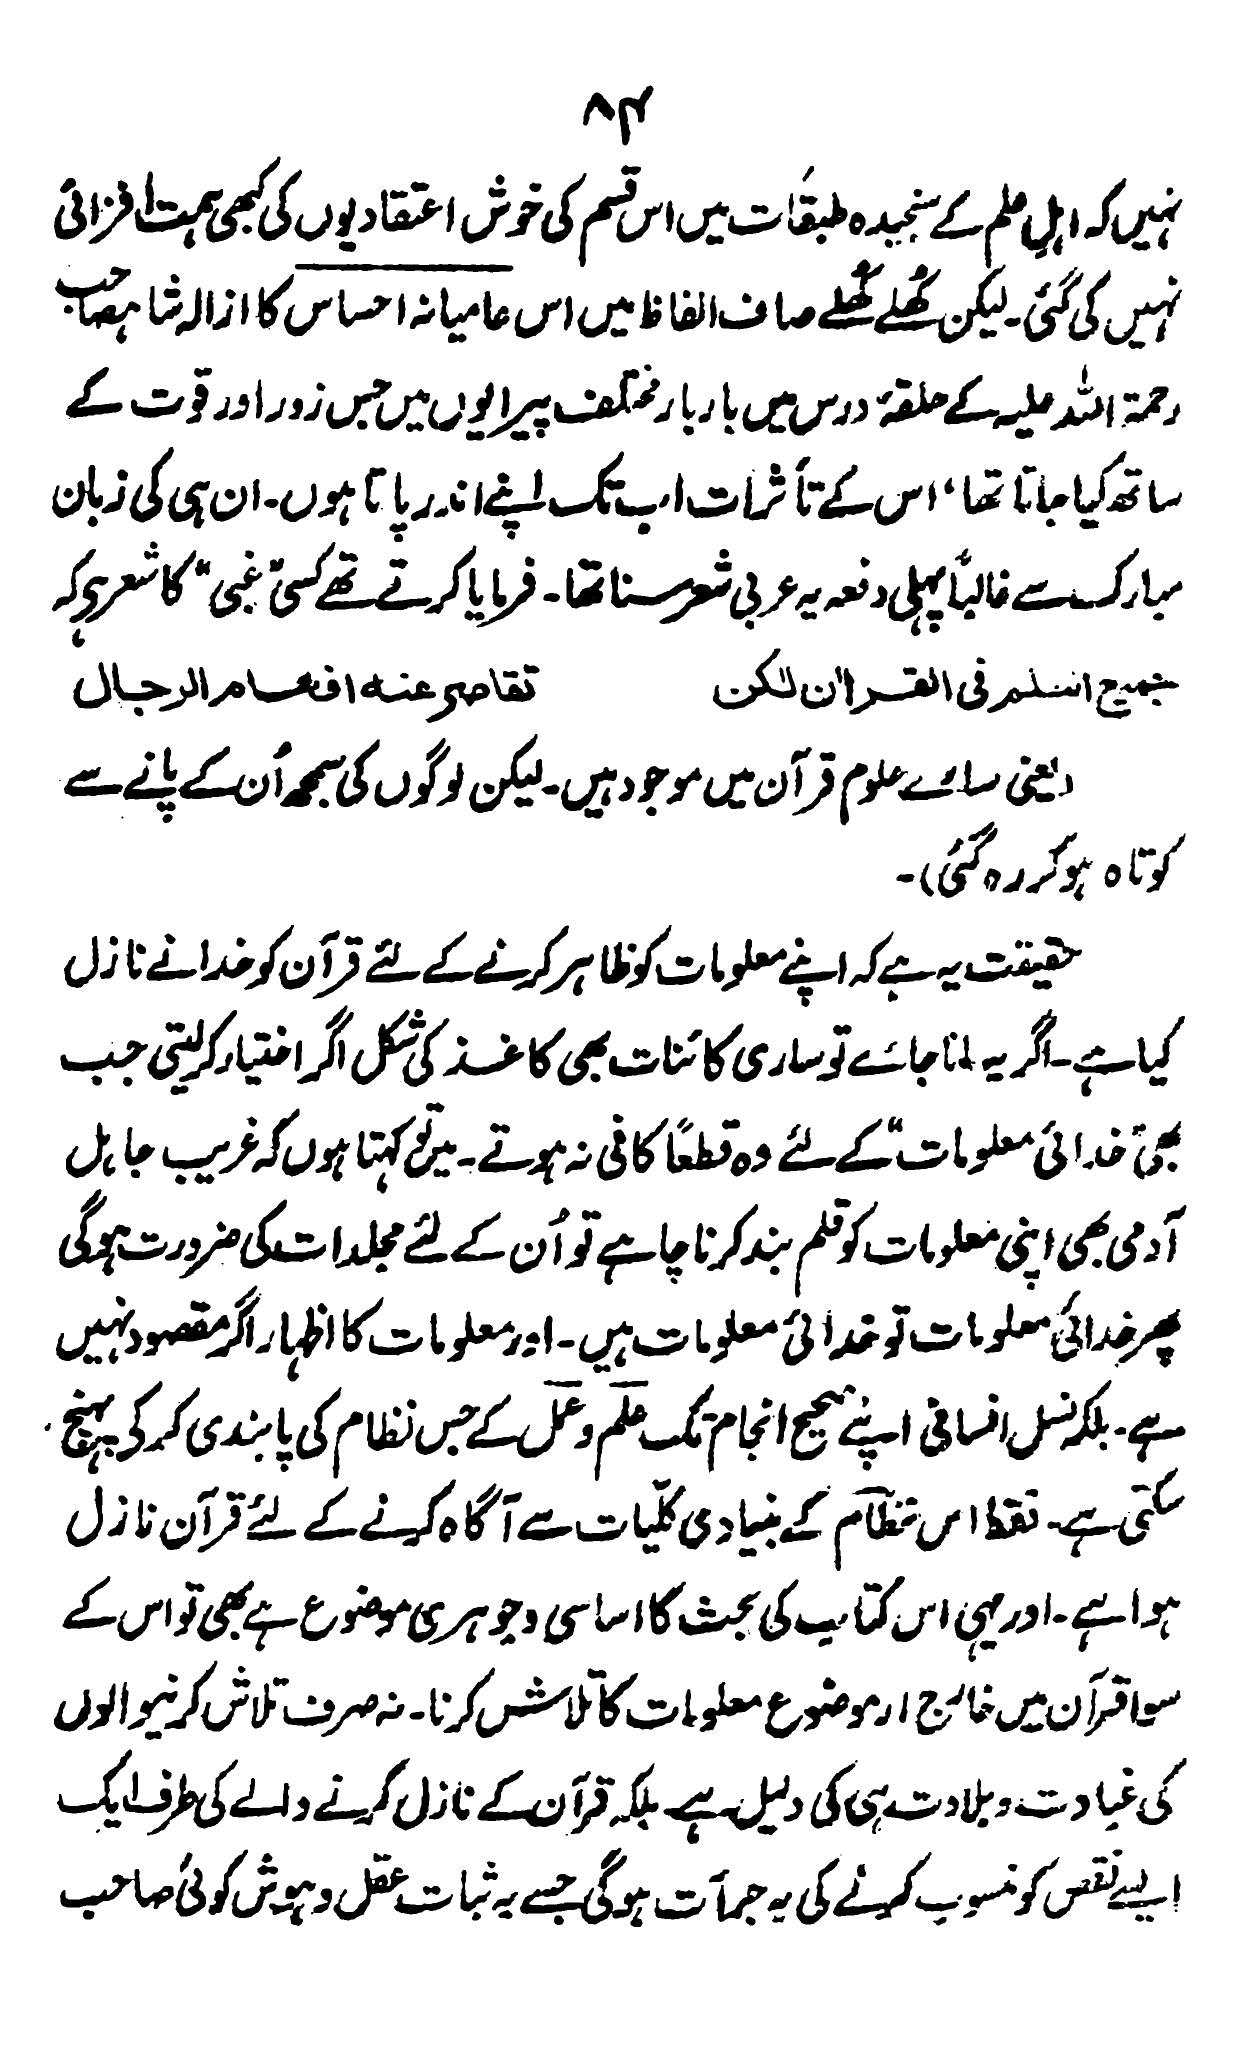 ۸۴
نہیں کہ اہلِ علم کے سنجیدہ طبقات میں اس قسم کی خوش اعتقادیوں کی کبھی ہمت افزائی
نہیں کی گئی۔ لیکن کُھلے کُھلے صاف الفاظ میں اس عامیانہ احساس کا ازالہ شاہصاحب
رحمۃ اللہ علیہ کے حلقۂ درس میں بار بار مختلف پیرایوں میں جس زور اور قوت کے
ساتھ کیا جاتا تھا، اس کے تأثرات اب تک اپنے اندر پاتا ہوں۔ ان ہی کی زبان
مبارک سے غالباً پہلی دفعہ یہ عربی شعر سنا تھا۔ فرمایا کرتے تھے کسی "غبی" کا شعر ہے کہ
جمیع العلم فی القران لکن تقاصر عنه افهام الرجال
(یعنی سارے علوم قرآن میں موجود ہیں۔ لیکن لوگوں کی سمجھ اُن کے پانے سے
کوتاہ ہو کر رہ گئی)۔
حقیقت یہ ہے کہ اپنے معلومات کو ظاہر کرنے کے لئے قرآن کو خدا نے نازل
کیا ہے۔ اگر یہ مانا جائے تو ساری کائنات بھی کاغذ کی شکل اگر اختیار کر لیتی جب
بھی "خدائی معلومات" کے لئے وہ قطعاً کافی نہ ہوتے۔ میں تو کہتا ہوں کہ غریب جاہل
آدمی بھی اپنی معلومات کو قلم بند کرنا چاہے تو اُن کے لئے مجلدات کی ضرورت ہوگی
پھر خدائی معلومات تو خدائی معلومات ہیں۔ اور معلومات کا اظہار اگر مقصود نہیں
ہے۔ بلکہ نسل انسانی اپنے صحیح انجام تک علم و عمل کے جس نظام کی پابندی کرکے پہنچ
سکتی ہے۔ فقط اس نظام کے بنیادی کلّیات سے آگاہ کرنے کے لئے قرآن نازل
ہوا ہے۔ اور یہی اس کتاب کی بحث کا اساسی و جوہری موضوع ہے بھی تو اس کے
سوا قرآن میں خارج از موضوع معلومات کا تلاش کرنا۔ نہ صرف تلاش کرنیوالوں
کی غباوت و بلادت ہی کی دلیل ہے۔ بلکہ قرآن کے نازل کرنے والے کی طرف ایک
ایسے نقص کو منسوب کرنے کی یہ جرأت ہوگی جسے بہ ثبات عقل و ہوش کوئی صاحب